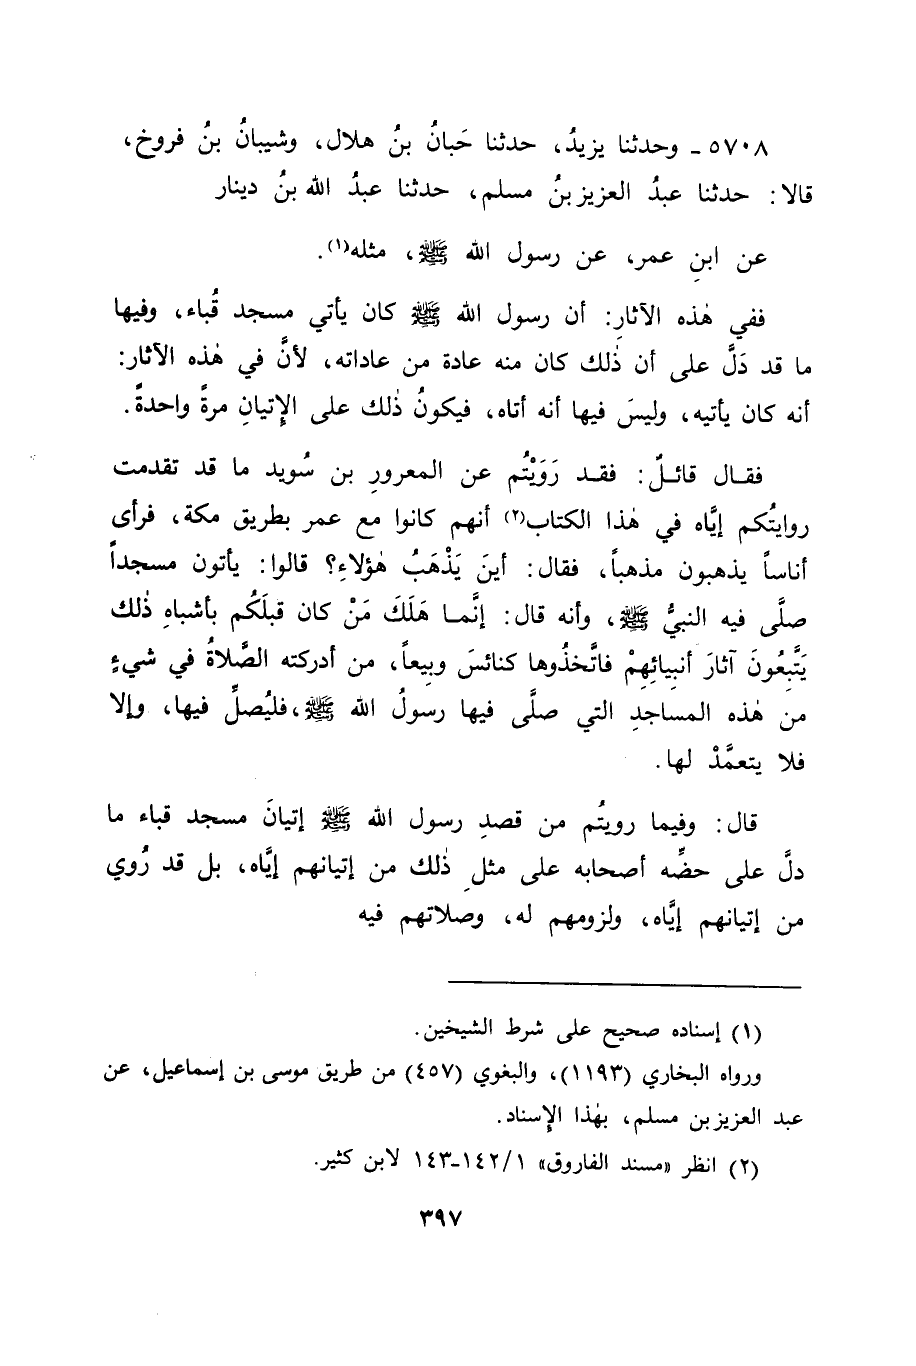 ٥٧٠٨ ـ وحدثنا يزيدُ، حدثنا حَبانُ بنُ هلال، وشيبانُ بنُ فروخ،
قالا: حدثنا عبدُ العزيز بنُ مسلم، حدثنا عبدُ الله بنُ دينار
عن ابنِ عمر، عن رسول الله ﷺ، مثله(١).
ففي هٰذه الآثارِ: أن رسول الله ﷺ كان يأتي مسجد قُباء، وفيها
ما قد دَلَّ على أن ذٰلك كان منه عادة من عاداته، لأنَّ في هٰذه الآثار:
أنه كان يأتيه، وليسَ فيها أنه أتاه، فيكونُ ذٰلك على الإِتيانِ مرةً واحدةً.
فقال قائلٌ: فقد رَوَيْتُم عن المعرورِ بن سُويد ما قد تقدمت
روايتُكم إيَّاه في هٰذا الكتاب(٢) أنهم كانوا مع عمر بطريق مكة، فرأى
أناساً يذهبون مذهباً، فقال: أينَ يَذْهَبُ هٰؤلاءِ؟ قالوا: يأتون مسجداً
صلَّى فيه النبيُّ ﷺ، وأنه قال: إنَّما هَلَكَ مَنْ كان قبلَكُم بأشباهِ ذٰلك
يَتَّبِعُونَ آثارَ أنبيائِهِمْ فاتَّخذُوها كنائسَ وبيعاً، من أدركته الصَّلاةُ في شيءٍ
من هٰذه المساجدِ التي صلَّى فيها رسولُ الله ﷺ،فليُصلِّ فيها، وإلا
فلا يتعمَّدْ لها.
قال: وفيما رويتُم من قصدِ رسول الله ﷺ إتيانَ مسجد قباء ما
دلَّ على حضِّه أصحابه على مثلِ ذٰلك من إتيانهم إيَّاه، بل قد رُوي
من إتيانهم إيَّاه، ولزومهم له، وصلاتهم فيه
(١) إسناده صحيح على شرط الشيخين.
ورواه البخاري (١١٩٣)، والبغوي (٤٥٧) من طريق موسى بن إسماعيل، عن
عبد العزيز بن مسلم، بهٰذا الإِسناد.
(٢) انظر «مسند الفاروق» ١٤٢/١-١٤٣ لابن كثير.
٣٩٧